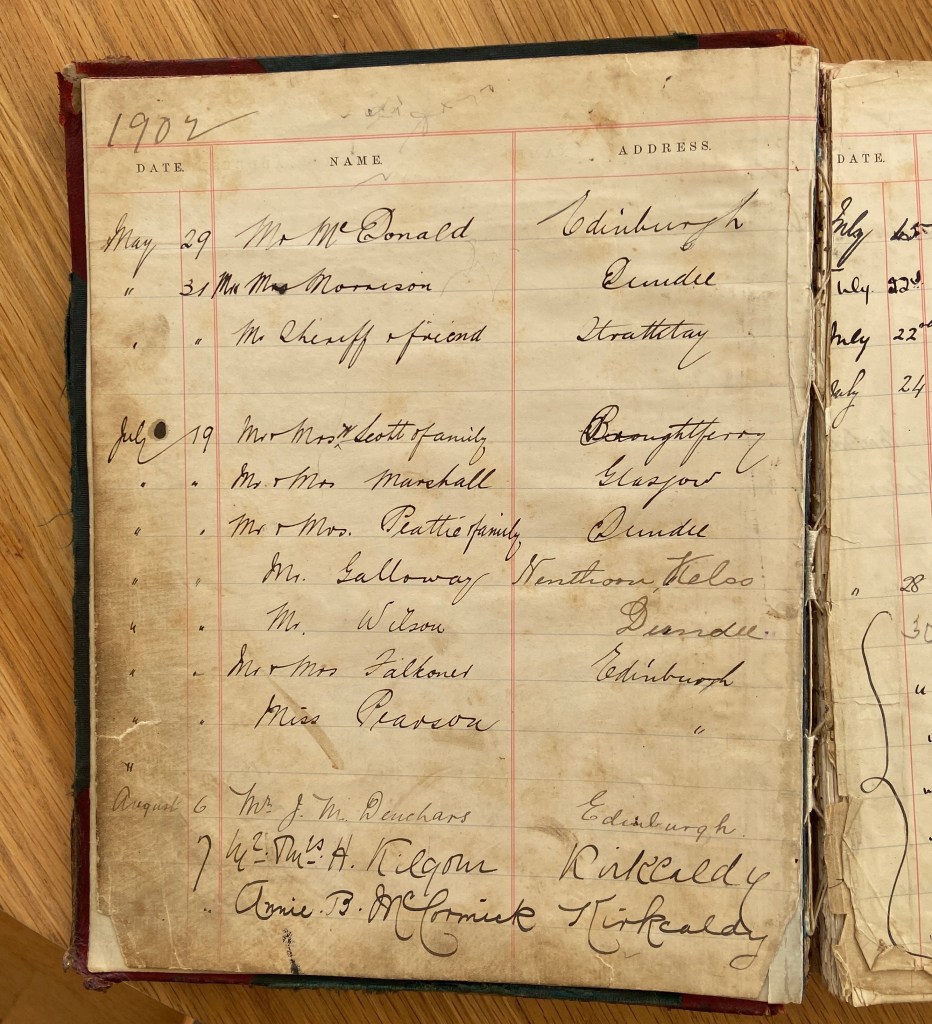 1902
DATE. NAME. ADDRESS.
May 29 Mr McDonald Edinburgh
" 31 Mr Mrs Morrison Dundee
" " Mr Sheriff & friend
July 19 Mr & Mrs Scott & family Broughtferry
" " Mr & Mrs Marshall Glasgow
" " Mr & Mrs. Peattie & family Dundee
" " Mr. Galloway Kelso
" " Mr. Wilson Dundee.
" " Mr & Mrs Falkoner Edinburgh
" " Miss Pearson "
"
August 6 Mr. J. M. Deuchars Edinburgh.
7 Mr. Mrs. H. Kilgour Kirkcaldy
" Annie. B. McCormick Kirkcaldy
DATE.
July 15
July 22nd
July 22nd
July 24
" 28
30
"
"
"
"